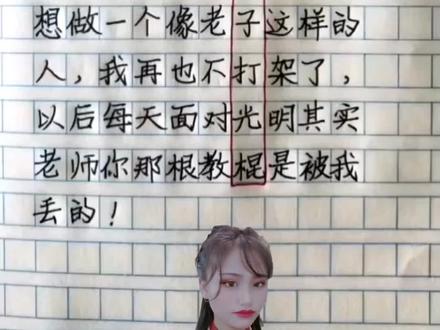 想做一个像老子这样的
人，我再也不打架了，
以后每天面对光明其实
老师你那根教棍是被我
丢的！